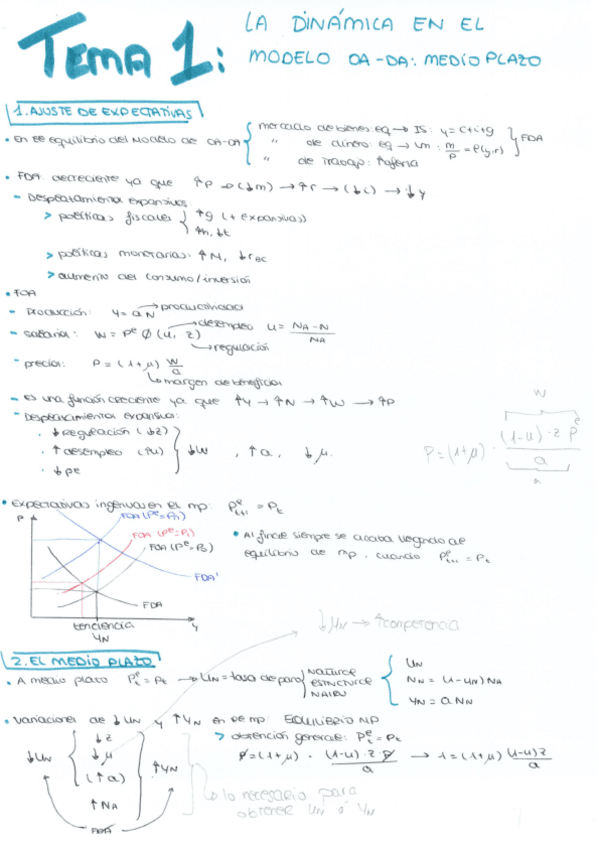 TEMA 1: LA DINÁMICA EN EL
MODELO OA-DA: MEDIO PLAZO
1. AJUSTE DE EXPECTATIVAS
• En el equilibrio del modelo de OA-DA { mercado de bienes eq → IS: y = c+i+g
" de dinero: eq → LM: m/p = l(y,r) } FDA
" de trabajo: ↑oferta
• FDA: decreciente ya que ↑p → (↓m) → ↑r → (↓i) → ↓y
- Desplazamientos expansivos:
> políticas fiscales { ↑g (+ expansivas)
↓t
> políticas monetarias: ↑M, ↓rBC
> aumento del consumo/inversión
• FOA
- Producción: y = a N → productividad
- salarios: W = Pe Ø (u, z) → desempleo u = NA - N / NA
→ regulación
- precios: P = (1+μ) W/a
→ margen de beneficios
- es una función creciente ya que ↑y → ↑N → ↑W → ↑P
- Desplazamientos expansivos:
· ↓regulación (↓z)
· ↑desempleo (↑u) } ↓W , ↑a, ↓μ.
· ↓pe
W
P = (1+μ) · (1-u)·z Pe / a
a
• Expectativas ingenuas en el mp: Pe t+1 = Pt
P
FOA (Pe=P1)
FOA (Pe=P0)
FDA'
FDA
tendencia
y
YN
• Al final siempre se acaba llegando al
equilibrio de mp. cuando Pe t+1 = Pt
↓μN → ↑competencia
2. EL MEDIO PLAZO
• A medio plazo Pe t = Pt → UN = tasa de paro { natural
estructural
NAIRU
{ UN
NN = (1-UN) NA
YN = a NN
• Variaciones de ↓UN y ↑YN en el mp: EQUILIBRIO MP
> obtención general: Pe t = Pt
P = (1+μ) · (1-u)·z·P / a → 1 = (1+μ) (1-u) z / a
↓UN { ↓z
↓μ
(↑a)
↑NA } ↑YN
FDA
lo necesario para
obtener UN ó YN